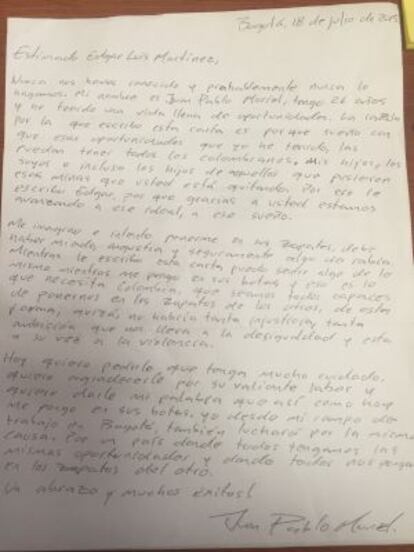 Bogotá, 18 de julio de 2015
Estimado Edgar Luis Martínez,
Nunca nos hemos conocido y probablemente nunca lo
hagamos. Mi nombre es Juan Pablo, tengo 26 años
y he tenido una vida llena de oportunidades. La razón
por la que escribo esta carta es porque sueño con
que esas oportunidades que yo he tenido, las
puedan tener todos los colombianos. Mis hijos, los
suyos e incluso los hijos de aquellos que pusieron
esas minas que usted está quitando. Por eso le
escribo Edgar, por que gracias a usted estamos
avanzando a ese ideal, a ese sueño.
Me imagino e intento ponerme en sus zapatos, debe
haber miedo, angustia y seguramente algo de rabia.
Mientras le escribo esta carta puedo sentir algo de lo
mismo mientras me pongo en sus botas, y eso es lo
que necesita Colombia, que seamos todos capaces
de ponernos en los zapatos de los otros, de esta
forma, quizá, no habría tanta injusticia, tanta
ambición que nos lleva a la desigualdad y esta
a su vez a la violencia.
Hoy quiero pedirle que tenga mucho cuidado,
quiero agradecerle por su valiente labor y
quiero darle mi palabra que así como hoy
me pongo en sus botas, yo desde mi campo de
trabajo en Bogotá, también lucharé por la misma
causa. Por un país donde todos tengamos las
mismas oportunidades y donde todos nos pongamos
en los zapatos del otro.
Un abrazo y muchos éxitos!
Juan Pablo